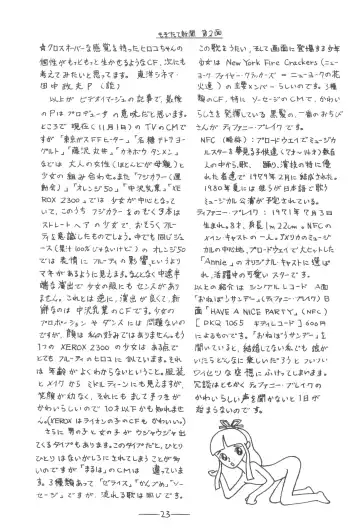 をきたて新聞 第2面
☆クロスオーバーな感覚を持ったヒロコちゃんの
個性がもっともっと生かせるようなCF、次にも
考えてみたいと思ってます。 東洋シネマ・
田中政夫P(談)
以上が ビデオイマージュの記事で、最後
のPはプロデュータの意味だと思います。
ところで 現在(11月1日)のTVのCMで
すが「東京ガスFFヒーター」「名糖チトアヨ
ーグルト」「藤沢 丘井」「カネボウ タンメン」
などは 大人の女性(ほとんどが母親)と
少女の組み合わせ。また「フジカラー(運
動会)」「オレンジ50」「中沢乳業」「XE
ROX 2300」では 少女が中心となって
いて、このうち フジカラーをのぞく3本は
ストレートヘアの少女で、おそらくブルー
ティを意識したものでしょう。中でも同じジュ
ース(果汁100%じゃないけど)のオレンジ50
では 表情に ブルーティの影響というより
マネがあるように見えます。なんとなく中途半
端な演出で 少女の服にも センスがあり
ません。これとは逆に、演出が良くて、新
鮮なのは 中沢乳業のCFです。少女の
プロポーション や ダンス には 問題ないの
ですが、顔は 私の好みではありません。もう
1つの XEROX 2300の 少女は ある面で
とても ブルーティのヒロコに似ています。それ
は 年齢がよくわからないということ。服装
とメイクからミドルティーンにも見えますが、
笑顔が幼なく、それにも まして手つきが
かわいらしいので 10才以下かも知れませ
ん(XEROXはライオンの子のCFもかわいい。)
さらに 男の子と女の子が ウジャウジャ出
てくるタイプもあります。このタイプだと、ひとり
ひとりはないがしろにされてしまうことが多
いのですが「まるは」のCMは 違っていま
す。3種類あって「ピラミス」「かんづめ」「ソー
セージ」ですが、流れる歌は同じです。
この歌もうたい、そして画面に登場する少年
少女は New York Fire Crackers (ニュー
ヨーク ファイヤー・クラッカーズ = ニューヨークの花
火達)の主要メンバーらしいのです。3種
類のCFで、特に ソーセージのCMで、かわい
らしさを発揮している 黒髪の一番のおちび
さんが ティファニー・ブレイク です。
NFC (略称): ブロードウェイでミュージカ
ルスターを夢見る子供達(マサールネオ)数百
人の中から、歌、 踊り、演技の特に優
れた者達で 1979年2月に結成された。
1980年夏には彼らが日本語で歌う
ミュージカル公演が予定されている。
ティファニー・ブレイク: 1971年7月3日
生まれ。8才、身長1m22cm。NFCの
メイン・キャストの一人。アメリカのミュージ
カルの中心地、ブロードウェイで大ヒットした
「Annie」のオリジナル・キャストに選ばれ
、活躍中の可愛いスターです。
以上の紹介は シングルレコード A面
「おねぼうサンデー」(ティファニー・ブレイク) B
面「HAVE A NICE PARTY」(NFC)
[DKQ 1065 キティレコード] 600円
によるものです。「おねぼうサンデー」を
聞いていると、結婚してない私でも 娘が
いたらどんなに楽しいだろうと ついつい
ワイセツな空想にふけってしまいます。
冗談はともかく ティファニー・ブレイクの
かわいらしい声を聞かないと1日が
始まらないのです。
—23—